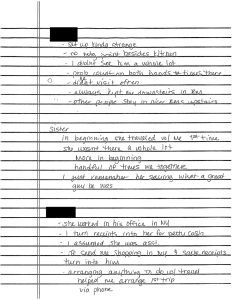 - set up kinda strange
- no beds went besides kitchen
- I didn't see him a whole lot
- prob count on both hands # times there
- didnt visit often
- always kept me downstairs in Rms
- other people stay in nicer Rms upstairs
Sister
In beginning she traveled w/ me 1st time
she wasnt there a whole lot
More in beginning
handful of times me together
I just remember her saying what a great
guy he was
- she worked in his office in NY
- I turn receipts into her for petty cash
- I assumed she was asst.
- send me shopping in NY & save receipts
turn into him
- arranging anything to do w/ travel
helped me arrange 1st trip
via phone